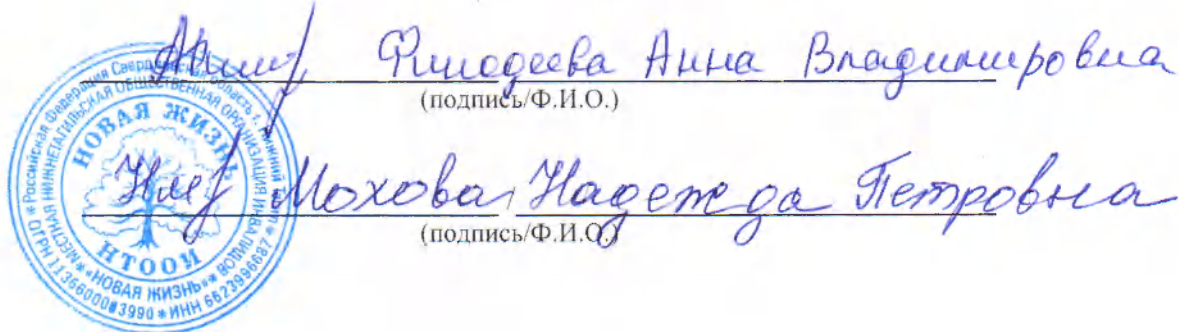 Финодеева Анна Владимировна
(подпись/Ф.И.О.)
Мохова Надежда Петровна
(подпись/Ф.И.О.)
Российская Федерация Свердловская область г. Нижний
МЕСТНАЯ НИЖНЕТАГИЛЬСКАЯ ОБЩЕСТВЕННАЯ ОРГАНИЗАЦИЯ ИНВАЛИДОВ
«НОВАЯ ЖИЗНЬ»
ОГРН 1136600003990 * ИНН 6623996687
НОВАЯ ЖИЗНЬ
НТООИ